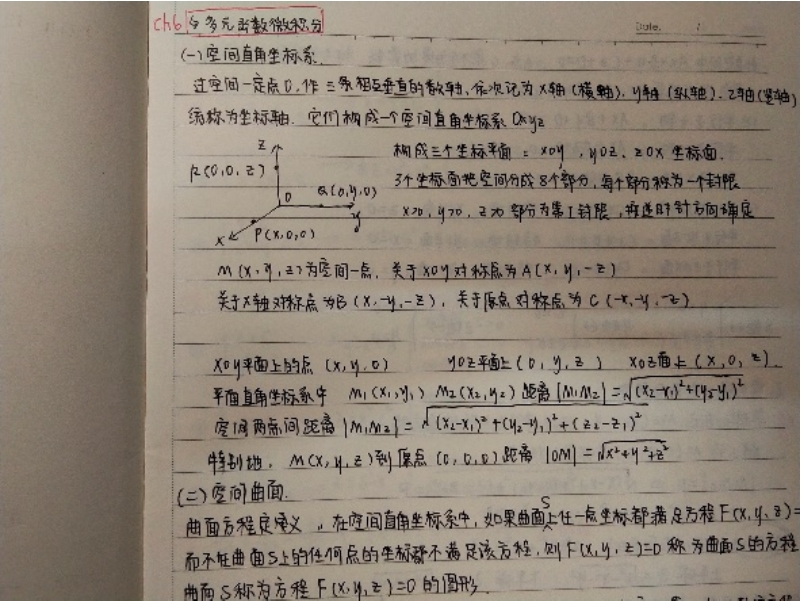 ch6 多元函数微积分
Date. /
(一)空间直角坐标系.
过空间一定点O,作三条相互垂直的数轴,依次记为X轴(横轴).y轴(纵轴).Z轴(竖轴)
统称为坐标轴. 它们构成一个空间直角坐标系Oxyz
构成三个坐标平面:xOy,yOz.zOx坐标面.
3个坐标面把空间分成8个部分,每个部分称为一个卦限
x>0,y>0,z>0部分为第I卦限,按逆时针方向确定
Z
R(0,0,z)
O
Q(0,y,0)
y
X
P(x,0,0)
M(x,y,z)为空间一点,关于xOy对称点为A(x,y,-z)
关于x轴对称点为B(x,-y,-z),关于原点对称点为C(-x,-y,-z)
xOy平面上的点(x,y,0) yOz平面上(0,y,z) xOz面上(x,0,z).
平面直角坐标系中 M1(x1,y1) M2(x2,y2)距离|M1M2|=√(x2-x1)²+(y2-y1)²
空间两点间距离|M1M2|=√(x2-x1)²+(y2-y1)²+(z2-z1)²
特别地,M(x,y,z)到原点(0,0,0)距离|OM|=√x²+y²+z²
(二)空间曲面.
曲面方程定义,在空间直角坐标系中,如果曲面S上任一点坐标都满足方程F(x,y,z)=
而不在曲面S上的任何点的坐标都不满足该方程,则F(x,y,z)=0称为曲面S的方程
曲面S称为方程F(x,y,z)=0的图形.